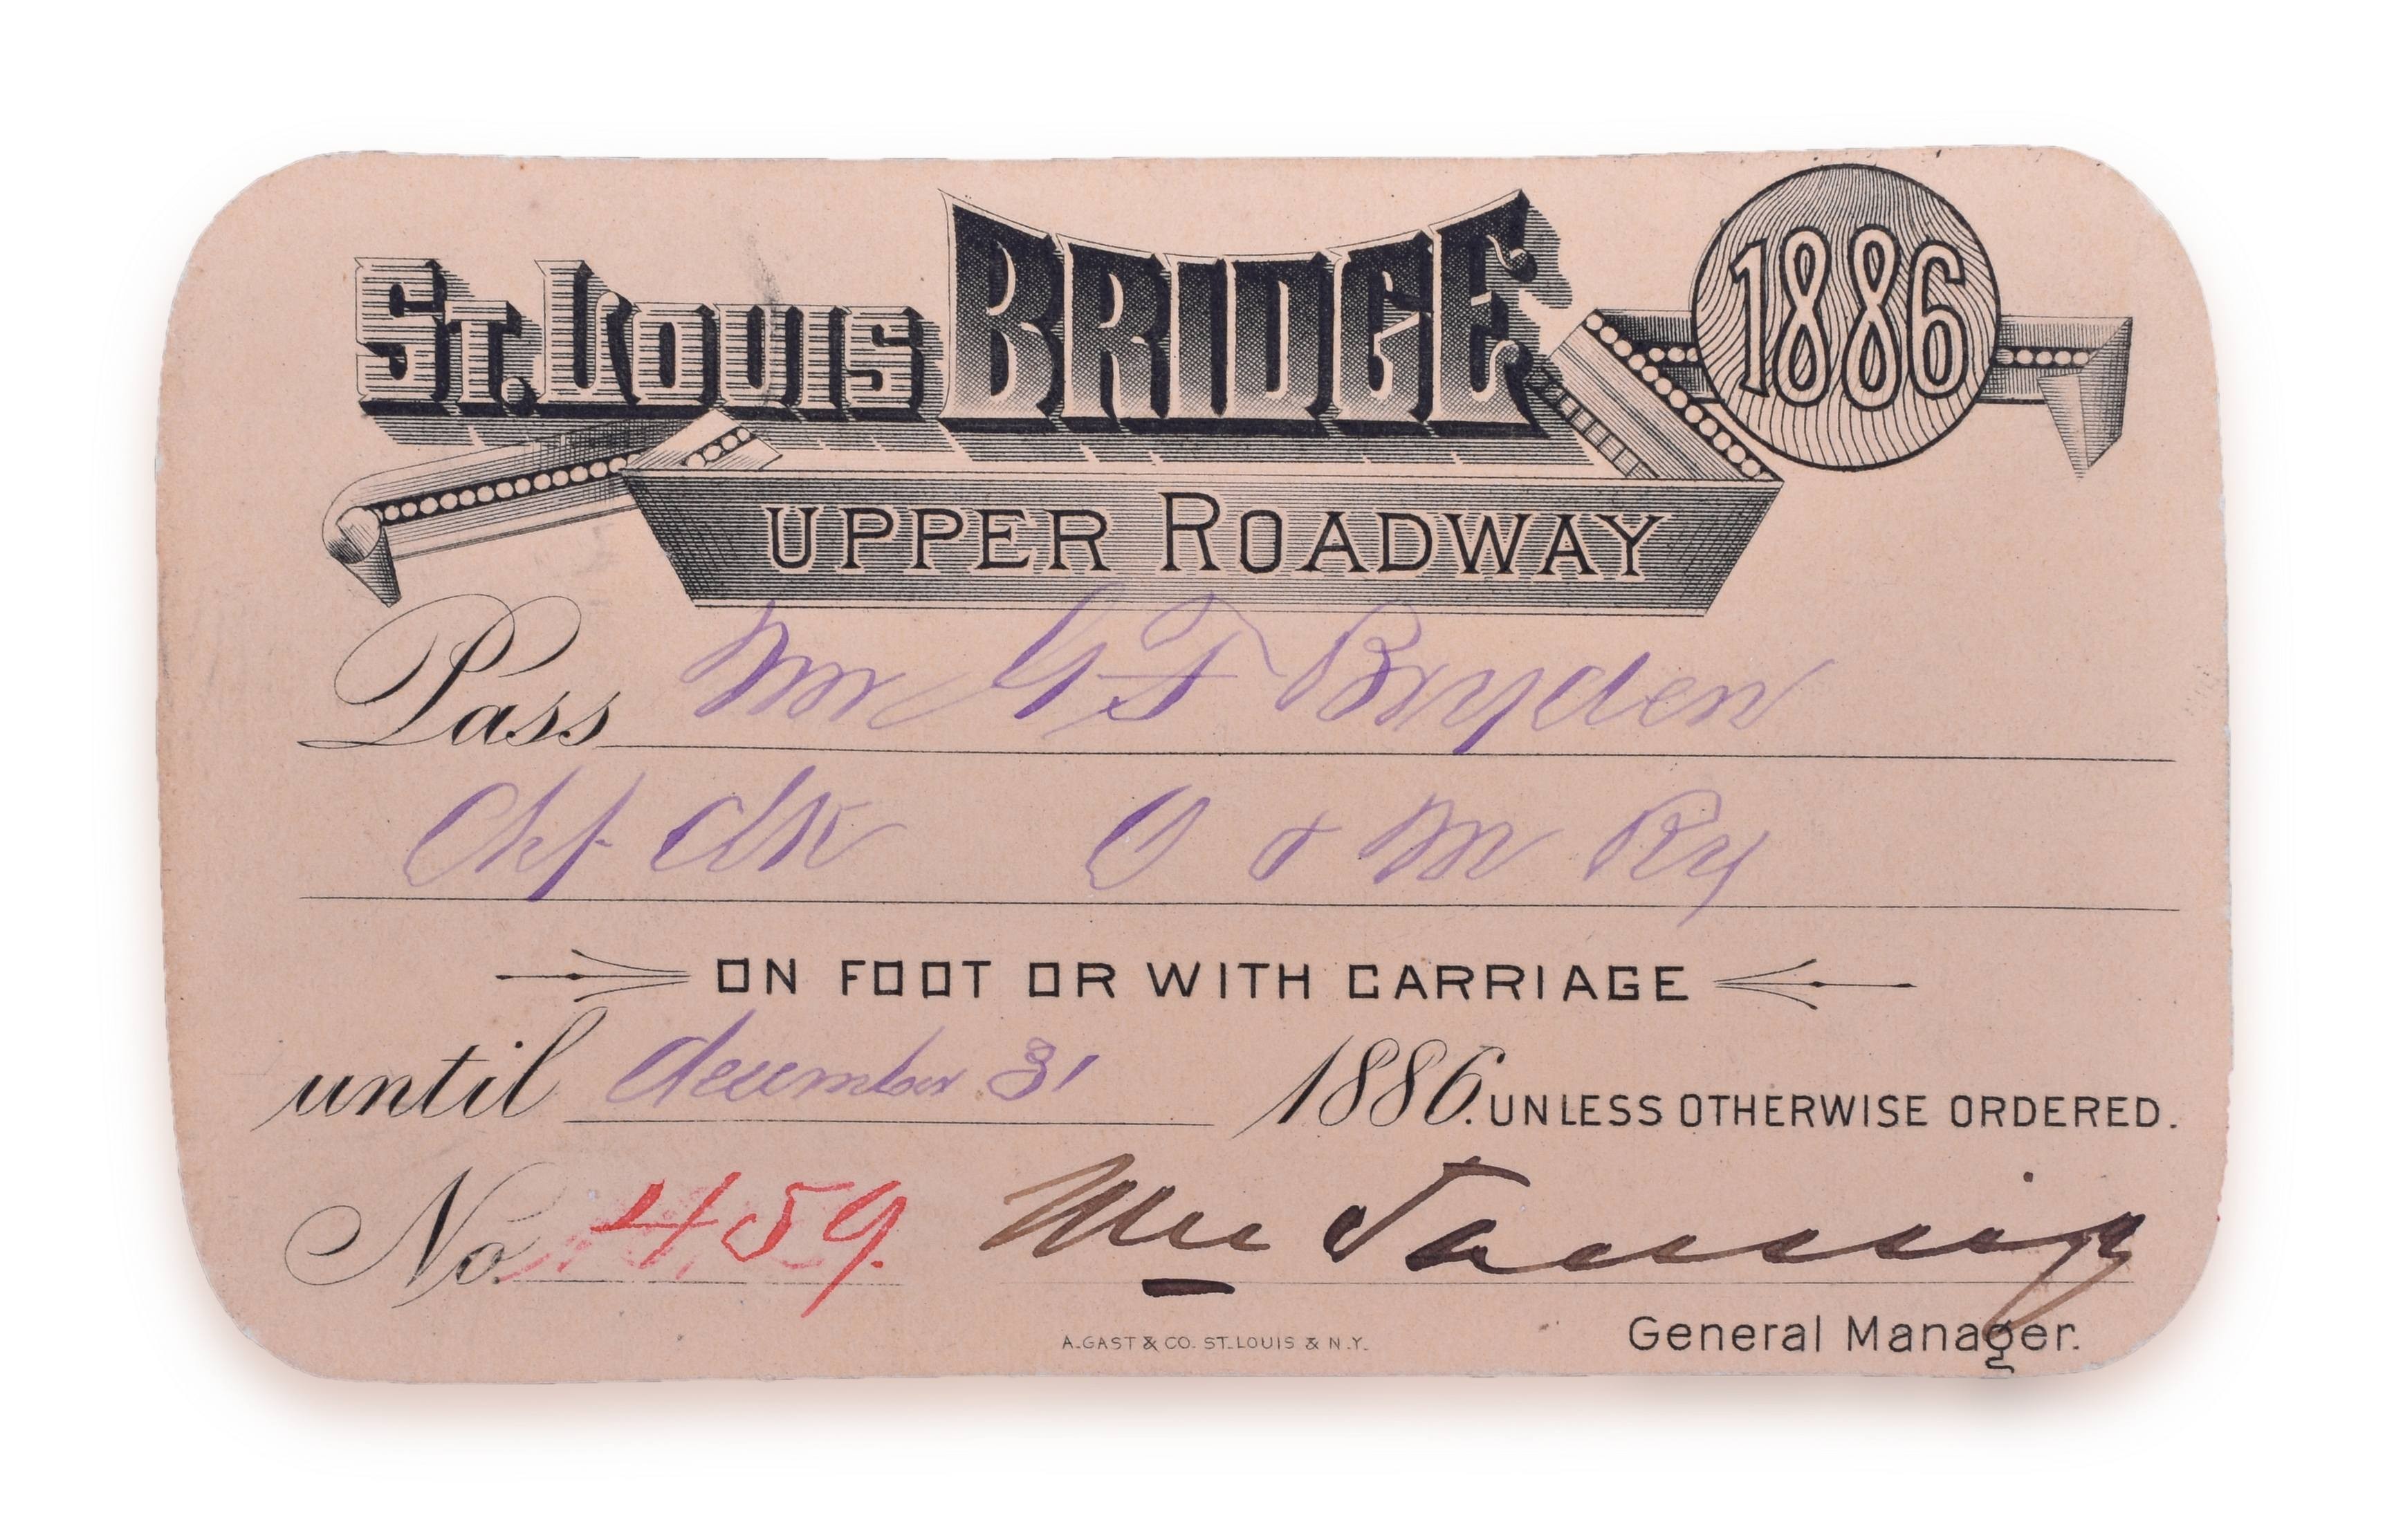 St. Louis BRIDGE 1886
UPPER ROADWAY
Pass Mr G F Bryden
Chf Clk O & M Ry
ON FOOT OR WITH CARRIAGE
until december 31 1886. UNLESS OTHERWISE ORDERED.
No. 459. Wm Taussig
General Manager.
A. GAST & CO. ST. LOUIS & N.Y.